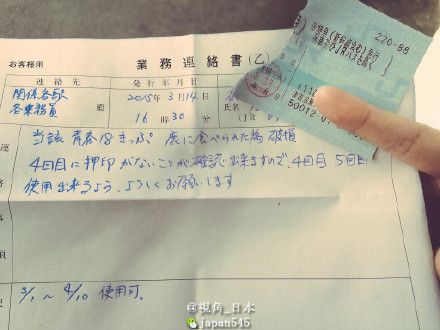 お客様用
業務連絡書(乙)
連絡先
発行年月日
関係各駅
各乗務員 殿
2015年3月14日
16時30分
(JR
当該 青春18きっぷ 鹿に食べられた為 破損
4回目に押印がないことが確認出来ますので、4回目 5回目
使用出来るよう、よろしくお願いします
連
絡
事
項
3/1 〜 4/10 使用可。
220-88
50012
@视角_日本
japan545